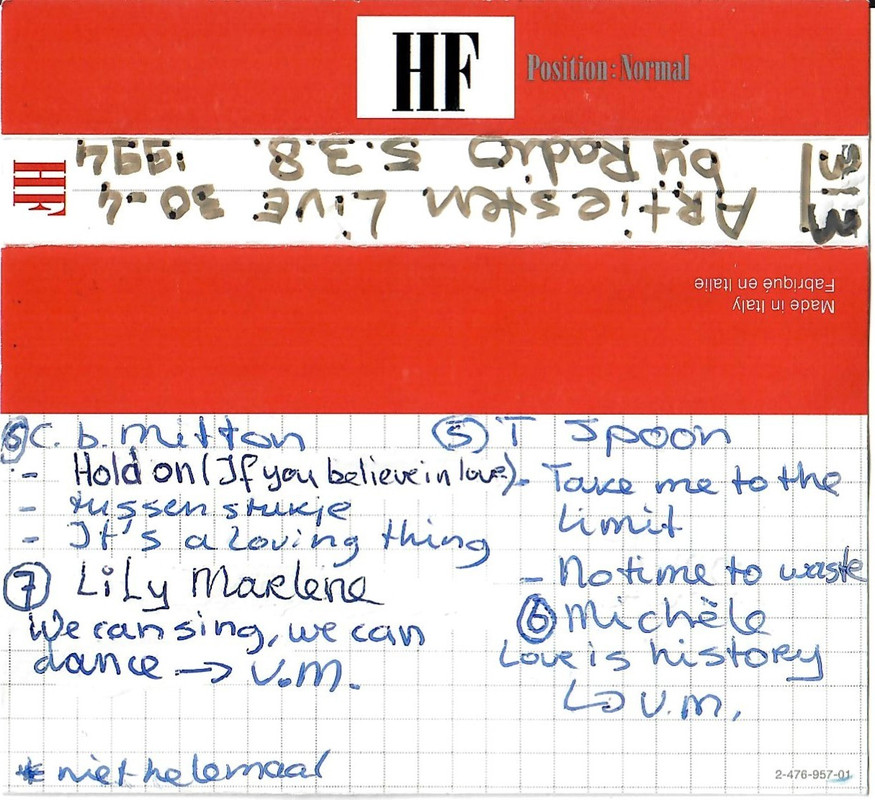 HF
Position: Normal
HF
Artiesten Live 30-4
by Radio 5.3.8. 1994
Made in Italy
Fabriqué en Italie
C. b. Mitton
- Hold on (If you believe in love)
- tussen stukje
- It's a loving thing
⑦ LiLy Marlene
We can sing, we can
dance → V.M.
* niet helemaal
⑤ T Spoon
- Take me to the
Limit
- No time to waste
⑥ Michèle
Love is history
↳ V.M.
2-476-957-01